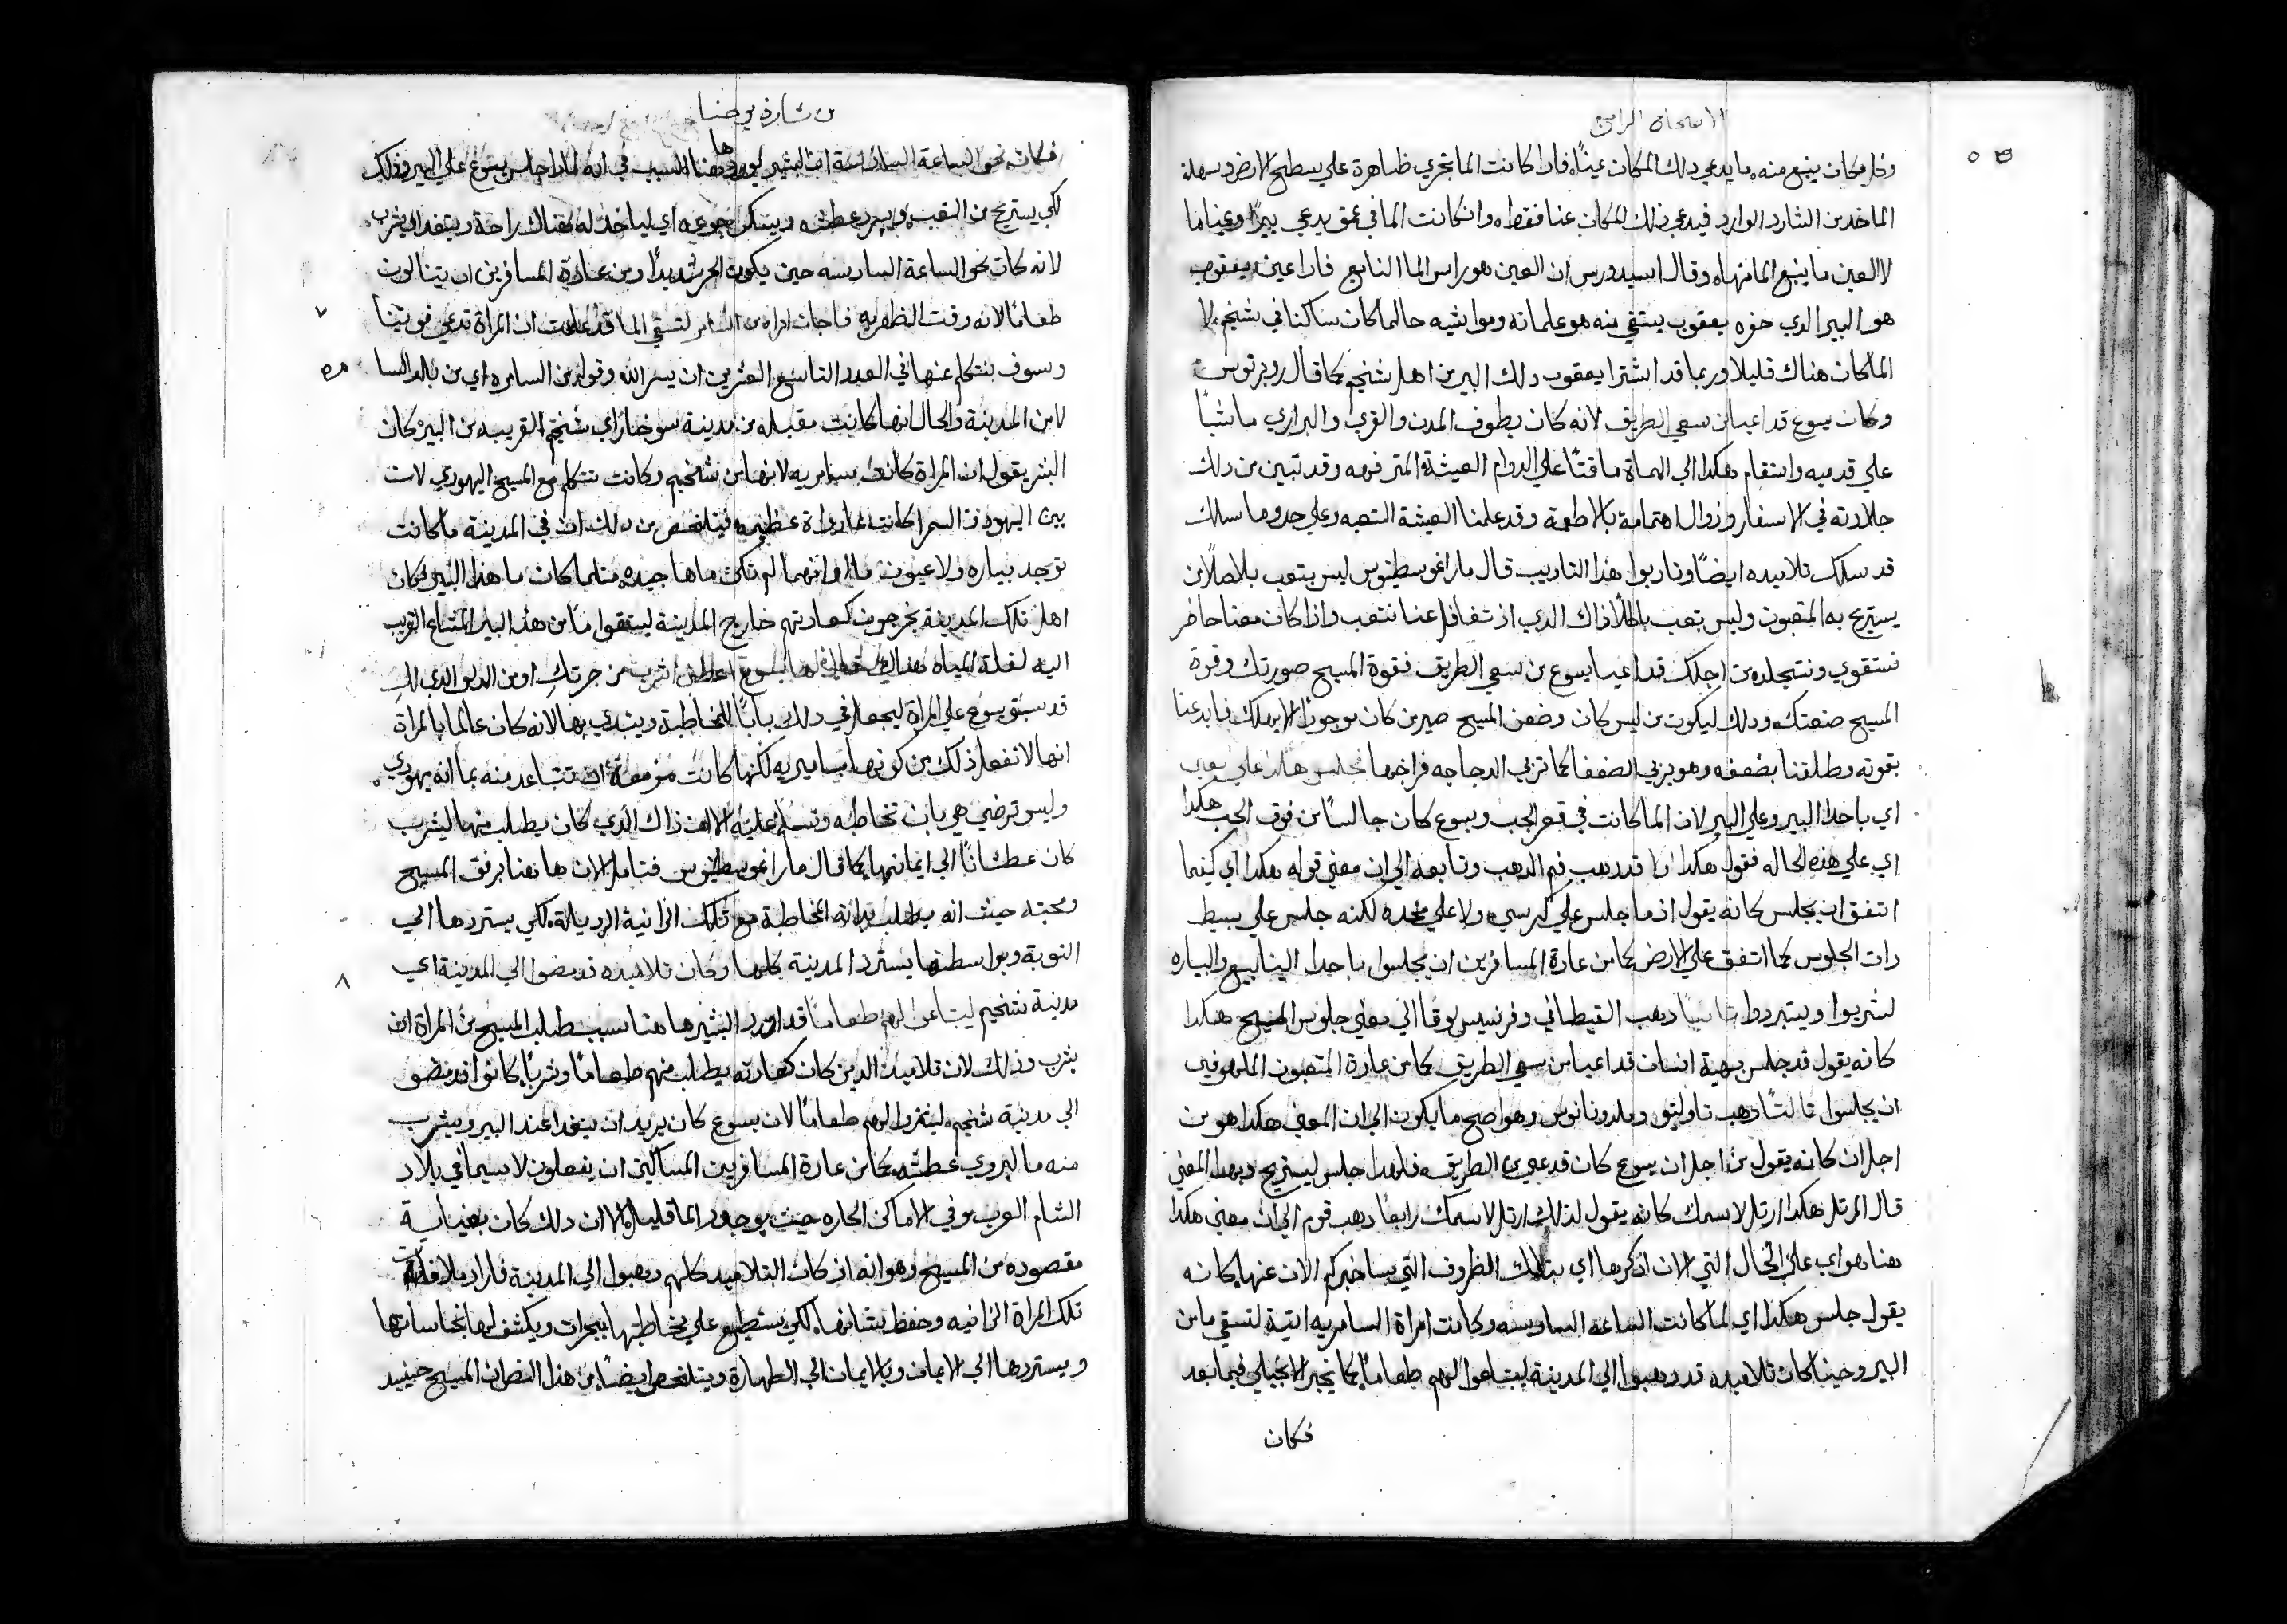 الاصحاح الرابع
وكل مكان ينبع منه ما يدعي دلك المكان عينًا فادا كانت الما تجري ظاهرة علي سطح الارض وسهلة
الماخد من الشارد الوارد فيدعي دلك المكان عينا فقط وان كانت الما في عمق يدعي بيرًا وعينا ما
لا العين ما ينبع الما منها وقال اسيدورس ان العين هو راس الما النابع فادا عين يعقوب
هو البير الدي حفره يعقوب يستقي منه هو وغلمانه ومواشيه حالما كان ساكنا في شخيم
الما كان هناك قليلا وربما قد اشترا يعقوب دلك البير من اهل شخيم كما قال روبرتوس
وكان يسوع قد اعيا من سعي الطريق لانه كان يطوف المدن والقري والبراري ماشيًا
علي قدميه واستقام هكدا الي المماة ماقتًا علي الدوام العيشة المترفهه وقد تبين من دلك
جلادته في الاسفار وزوال اهتمامه بالاطعمة وقد علمنا العيشة التعبه وعلي حدو ما سلك
قد سلك تلاميده ايضًا وتادبوا هدا التاديب قال مار اغوسطينوس ليس يتعب باطلًا من
يستريح به المتعبون وليس يتعب باطلًا داك الدي اد تغافل عنا نتعب وادا كان معنا حاضر
نستقوي ونتجلد من اجلك قد اعيا يسوع من سعي الطريق فقوة المسيح صورتك وقوة
المسيح صنعتك ودلك ليكون من ليس كان وضعف المسيح صير من كان موجودًا الا يهلك فابدعنا
بقوته وطلبنا بضعفه وهو يربي الضعفا كما تربي الدجاجه فراخها فجلس هكدا علي العين
اي باحدا البير وعلي البير لان الما كانت في قعر الجب ويسوع كان جالسًا من فوق الجب هكدا
اي علي هده الحاله فقوله هكدا اولا قد دهب فم الدهب وتابعه الي ان معني قوله هكدا اي كيفما
اتفق ان يجلس كانه يقول اد ما جلس علي كرسي ولا علي مخده لكنه جلس علي بسيط
دات الجلوس كما اتفق علي الارض كما من عادة المسافرين ان يجلسوا باحدا الينابيع والبياره
لشربوا ويتبردوا ثانيًا دهب القيطاني وفرنسيس لوقا الي معني جلوس المسيح هكدا
كانه يقول قد جلس بهية انسان قد اعيا من سعي الطريق كما من عادة المتعبون الملهوفين
ان يجلسوا ثالثًا دهب تاوليتو وملدوناتوس وهو اصح ما يكون الي ان المعني هكدا هو من
اجل ان كانه يقول من اجل ان يسوع كان قد عيي من الطريق فلهدا جلس ليستريح وبهدا المعني
قال المرتل هكدا ارتل لاسمك كانه يقول لدلك ارتل لاسمك رابعًا دهب قوم الي ان معني هكدا
هنا هو اي علي الحال التي الان ادكرها اي بتلك الظروف التي ساخبركم الان عنها كانه
يقول جلس هكدا اي لما كانت الساعه السادسه وكانت امراة السامريه اتية لتستقي ما من
البير وحينا كان تلاميده قد دهبوا الي المدينة ليبتاعوا لهم طعامًا كما يخبر الانجيلي فيما بعد
فكان
من بشارة يوحنا
فكان نحو الساعة السادسة ان البشير يورد ها هنا السبب في انه لمادا جلس يسوع علي البير ودلك
لكي يستريح من التعب ويبرد عطشه ويسكن جوعه اي لياخد له هناك راحة ويتغدا ويشرب
لانه كان نحو الساعة السادسه حين يكون الحر شديدًا ومن عادة المسافرين ان يتنالون
طعامًا لانه وقت الظهريه فاجات امراه من السامره لتستقي الما قد علمت ان المراة تدعي فوتينا ٧
وسوف نتكلم عنها في العدد التاسع العشرين ان يسر الله وقوله من السامره اي من بلد السا
لا من المدينة والحال انها كانت مقبله من مدينة سوخار اي شخيم القريبه من البير كان
البشر يقول ان المراة كانت سامريه لانها من شخيم وكانت تتكلم مع المسيح اليهودي لان
بين اليهود والسمرا كانت عداوة عظيمه فيتلخص من دلك ان في المدينة ما كانت
توجد بياره ولا عيون ما او انهما لم تكن ماها جيده مثلما كان ما هدا البير فكان
اهل تلك المدينة يخرجون كعادتهم خارج المدينة ليستقوا ما من هدا البير المشاع القريب
اليه لقلة المياه هناك فقال لها يسوع اعطيني اشرب من جرتكِ او من الدلو الدي لكِ
قد سبق يسوع علي المراة ليجعل في دلك بابًا للمخاطبة ويبتدي بها لانه كان عالما بالمراة
انها لا تفعل دلك من كونها سامريه لكنها كانت مزمعة ان تتباعد منه بما انه يهودي
وليس ترضي هي بان تخاطبه وتسلم عليه الا ان داك الدي كان يطلب منها ليشرب
كان عطشانًا الي ايمانها كما قال مار اغوسطينوس فتامل الان ها هنا برفق المسيح
ومحبته حيث انه يطلب بداته المخاطبة مع تلك الزانية الرديلة لكي يستردها الي
التوبة وبواسطتها يسترد المدينة كلها وكان تلاميده قد مضوا الي المدينة اي ٨
مدينة شخيم ليبتاعوا لهم طعامًا قد اورد البشير ها هنا سبب طلب المسيح من المراة ان
يشرب ودلك لان تلاميده الدين كان كعادته يطلب منهم طعامًا وشربًا كانوا قد مضو
الي مدينة شخيم ليشتروا لهم طعامًا لان يسوع كان يريد ان يتغدا عند البير ويشرب
منه ما ليروي عطشه كما من عادة المسافرين المساكين ان يفعلون لا سيما في بلاد
الشام العرب وفي الاماكن الحاره حيث يوجد الما قليلا الا ان دلك كان بعناية
مقصوده من المسيح وهو انه اد كان التلاميد كلهم دهبوا الي المدينة فاراد ملافاة
تلك المراة الزانيه وحفظ شانها لكي يستطيع علي مخاطبتها بجرات ويكشف لها نجاساتها
ويستردها الي الايمان وبالايمان الي الطهارة ويتلخص ايضًا من هدا النص ان المسيح حينيد